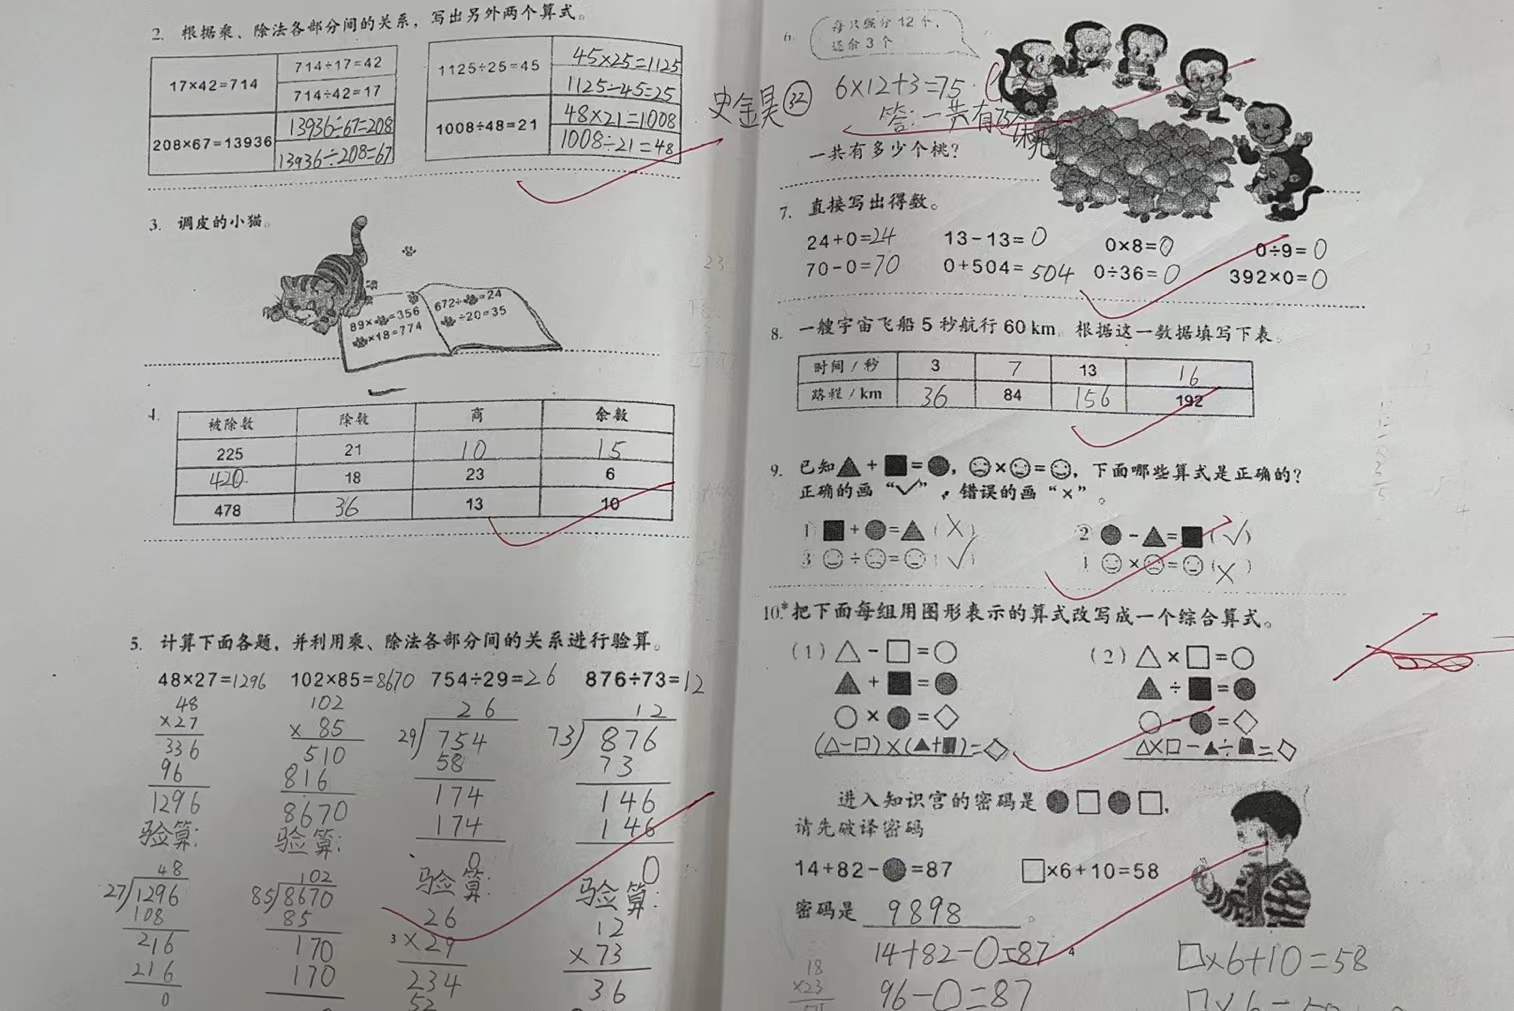 2. 根据乘、除法各部分间的关系，写出另外两个算式。
17×42=714
714÷17=42
714÷42=17
208×67=13936
13936÷67=208
13936÷208=67
1125÷25=45
45×25=1125
1125÷45=25
1008÷48=21
48×21=1008
1008÷21=48
3. 调皮的小猫。
89× =356
×18=774
672÷ =24
÷20=35
4.
被除数 除数 商 余数
225 21 10 15
420 18 23 6
478 36 13 10
5. 计算下面各题，并利用乘、除法各部分间的关系进行验算。
48×27=1296 102×85=8670 754÷29=26 876÷73=12
48
×27
336
96
1296
验算:
48
27 1296
108
216
216
0
102
× 85
510
816
8670
验算:
102
85 8670
85
170
170
26
29 754
58
174
174
0
验算:
26
×29
234
52
12
73 876
73
146
146
0
验算:
12
×73
36
史金昊 32
6.
每只猴分 12 个，
还余 3 个
6×12+3=75
答:一共有75个桃
一共有多少个桃？
7. 直接写出得数。
24+0=24 13-13=0 0×8=0 0÷9=0
70-0=70 0+504=504 0÷36=0 392×0=0
8. 一艘宇宙飞船 5 秒航行 60 km。根据这一数据填写下表。
时间 / 秒 3 7 13 16
路程 / km 36 84 156 192
9. 已知▲+■=●，☹×☺=☺，下面哪些算式是正确的？
正确的画“✓”，错误的画“×”。
1 ■+●=▲ (×) 2 ●-▲=■ (✓)
3 ☺÷☹=☺ (✓) ☺×☹=☺ (×)
10.* 把下面每组用图形表示的算式改写成一个综合算式。
(1) △-□=○
▲+■=●
○×●=◇
(△-□)×(▲+■)=◇
(2) △×□=○
▲÷■=●
○-●=◇
△×□-▲÷■=◇
进入知识宫的密码是●□●□，
请先破译密码
14+82-●=87 □×6+10=58
密码是 9898 。
14+82-○=87
96-○=87
□×6+10=58
18
×23